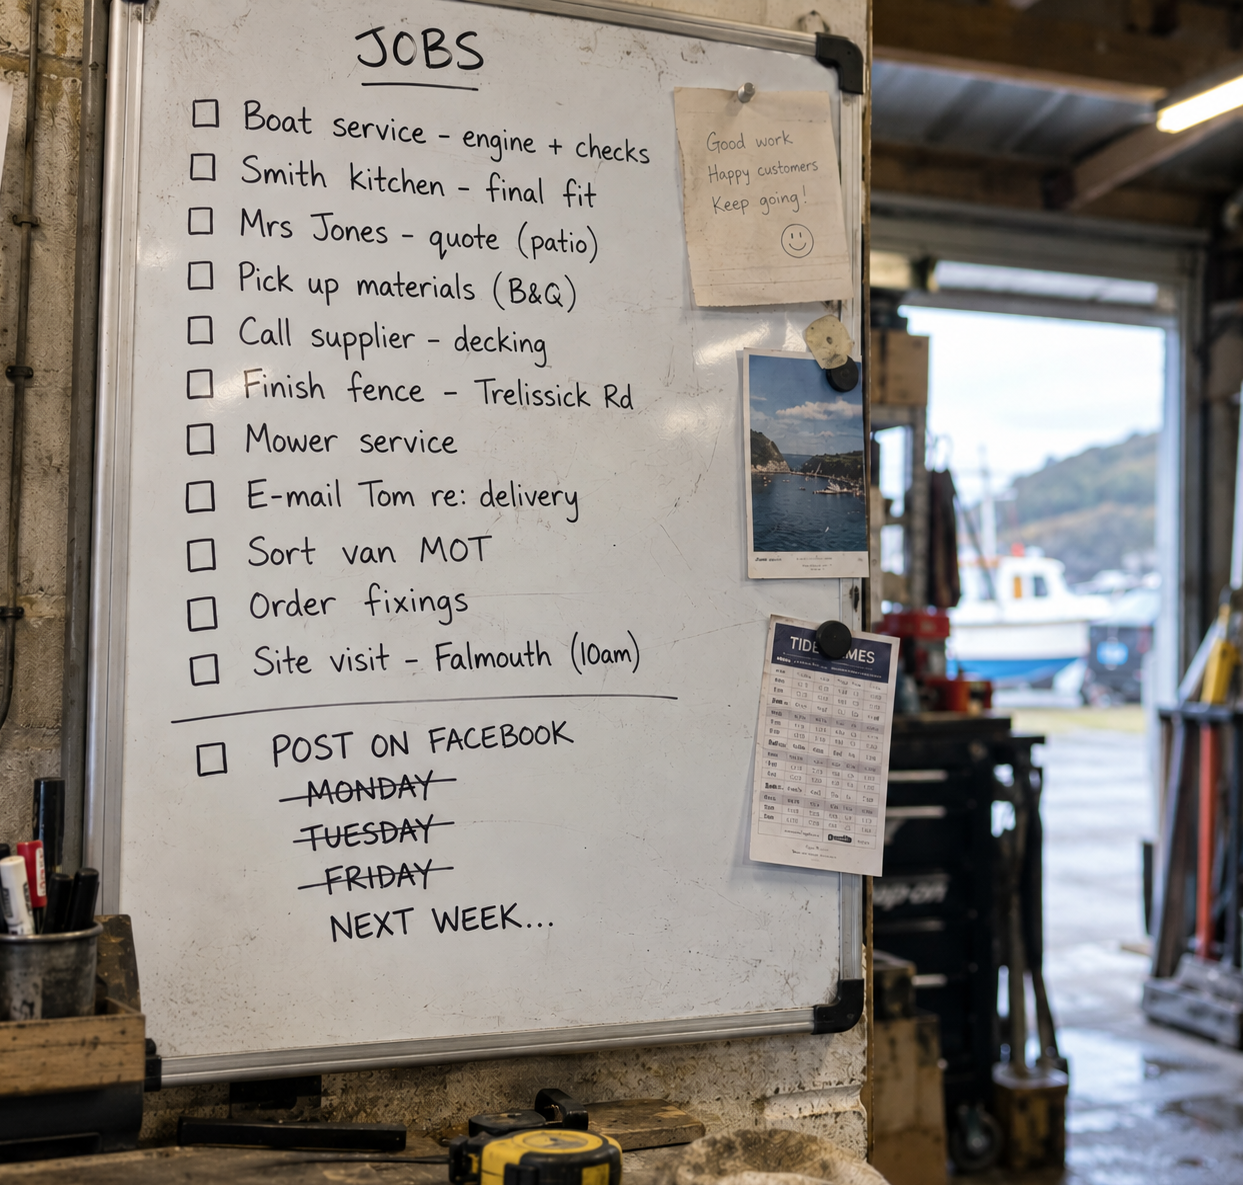 JOBS
Boat service - engine + checks
Smith kitchen - final fit
Mrs Jones - quote (patio)
Pick up materials (B&Q)
Call supplier - decking
Finish fence - Trelissick Rd
Mower service
E-mail Tom re: delivery
Sort van MOT
Order fixings
Site visit - Falmouth (10am)
POST ON FACEBOOK
MONDAY
TUESDAY
FRIDAY
NEXT WEEK...
Good work
Happy customers
Keep going!